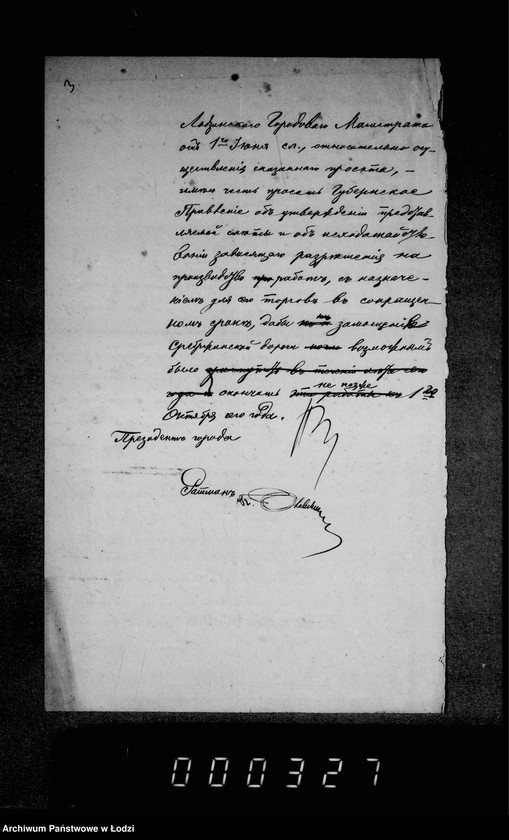 3
Лодзинского Городоваго Магистрата
отъ 1го Іюня с.г., относительно осу-
ществленія сказаннаго проекта, —
имѣю честь просить Губернское
Правленіе объ утвержденіи представ-
ляемой смѣты и объ исходатайство-
ваніи зависящаго разрѣшенія на
производство работъ, съ назначе-
ніемъ для сего торговъ въ сокращен-
номъ срокѣ, дабы замощеніе
Сребржинской дороги возможнымъ
было
года и окончать не позже 1го
Октября сего года.
Президентъ города
Ратманъ
000327
Archiwum Państwowe w Łodzi